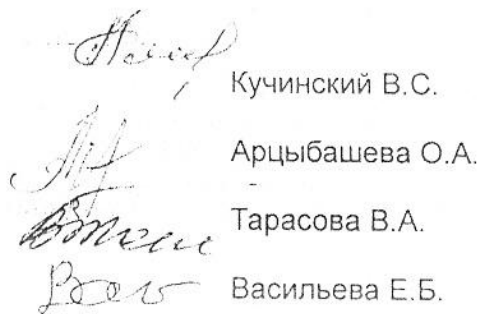 Кучинский В.С.
Арцыбашева О.А.
Тарасова В.А.
Васильева Е.Б.